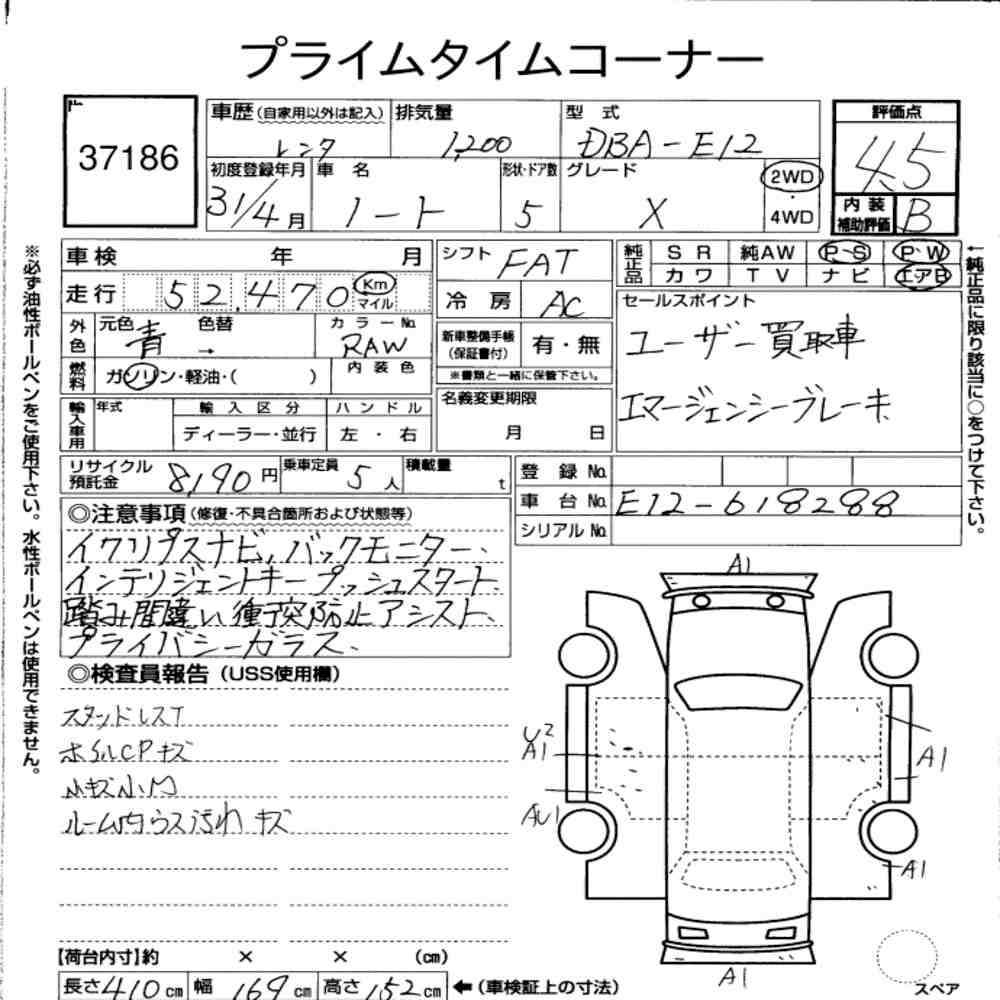 プライムタイムコーナー
37186
車歴(自家用以外は記入) レンタ
排気量 1,200
型式 DBA-E12
評価点 4.5
初度登録年月 31/4月
車名 ノート
形状・ドア数 5
グレード X
2WD・4WD
内装補助評価 B
車検 年 月
シフト FAT
純正品 SR 純AW P・S P・W
カワ TV ナビ エアB
走行 52,470 Km マイル
冷房 AC
セールスポイント
ユーザー買取車
エマージェンシーブレーキ
外色 元色 青 → 色替
カラーNo. RAW
新車整備手帳(保証書付) 有・無
※書類と一緒に保管下さい。
燃料 ガソリン・軽油・( )
内装色
輸入車用 年式 輸入区分 ハンドル
ディーラー・並行 左・右
名義変更期限 月 日
リサイクル預託金 8,190円
乗車定員 5人
積載量 t
登録No.
車台No. E12-618288
シリアルNo.
◎注意事項(修復・不具合箇所および状態等)
イクリプスナビ、バックモニター、
インテリジェントキー プッシュスタート、
踏み間違い衝突防止アシスト、
プライバシーガラス、
◎検査員報告(USS使用欄)
スタッドレスT
ホイルCPキズ
小キズ小凹
ルーム内ウス汚れ キズ
A1
U2
A1
AU1
A1
A1
A1
スペア
【荷台内寸】約 × × (cm)
長さ410cm 幅169cm 高さ152cm ←(車検証上の寸法)
※必ず油性ボールペンをご使用下さい。水性ボールペンは使用できません。
←純正品に限り該当に○をつけて下さい。